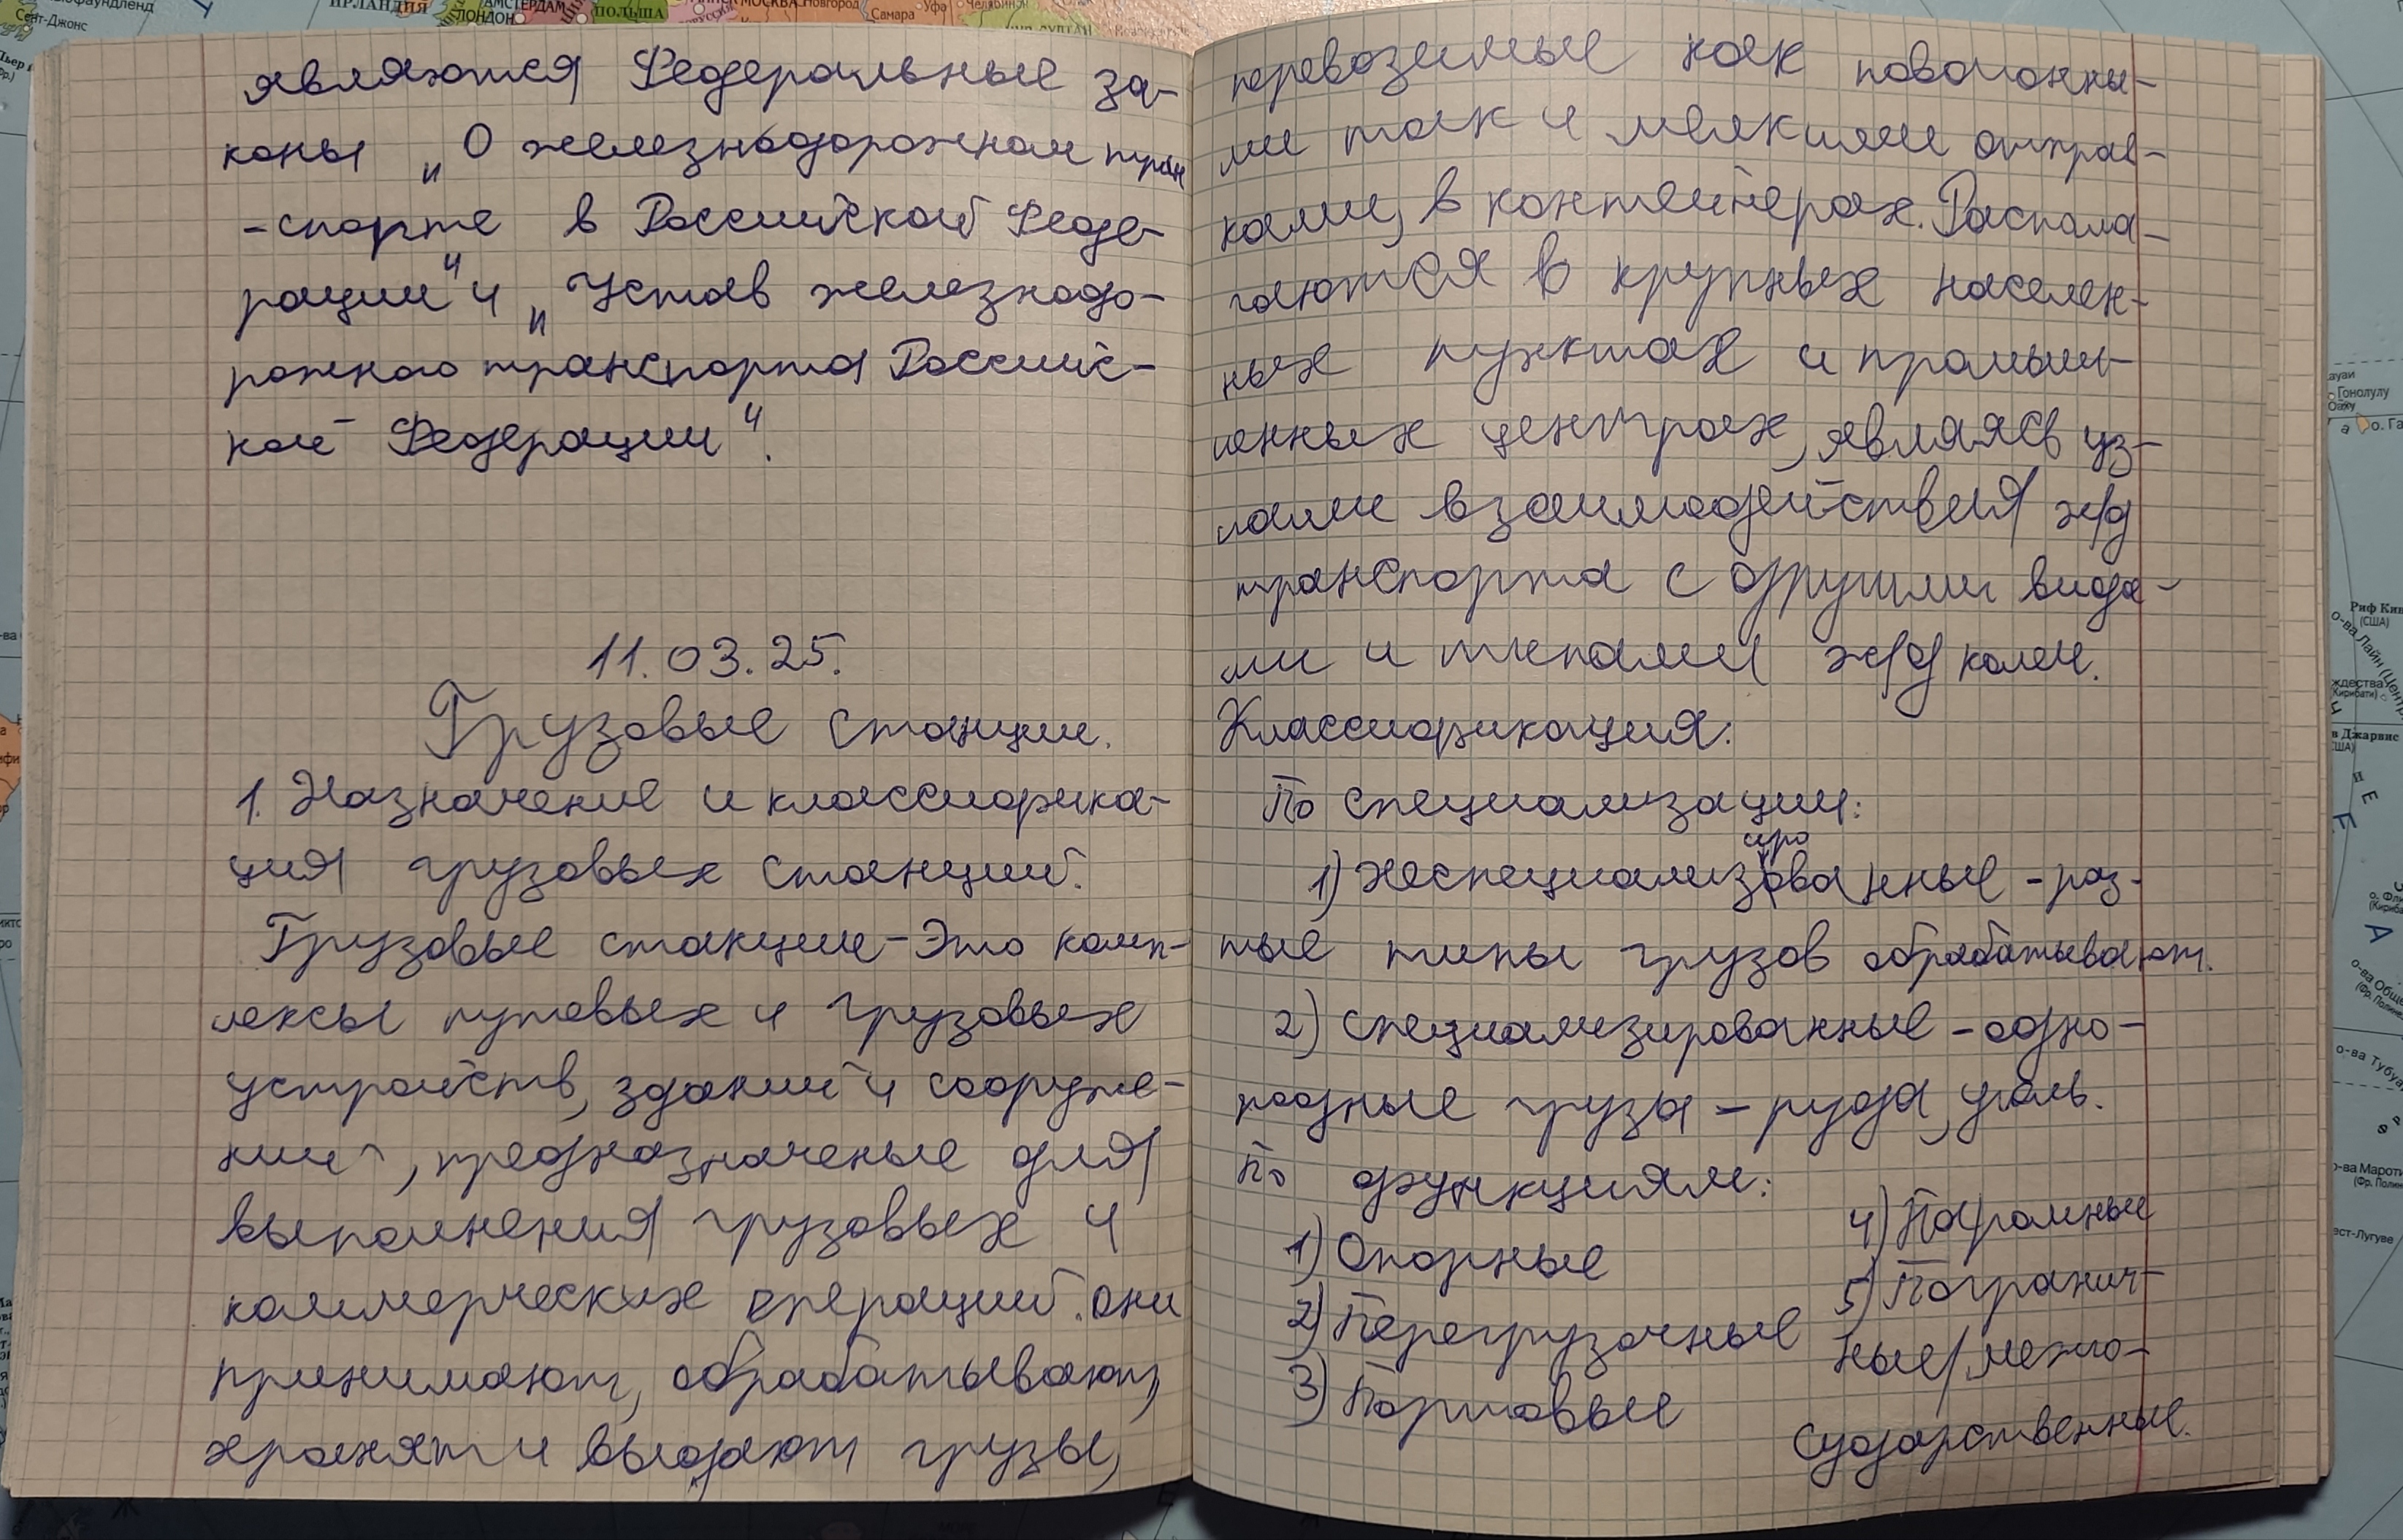 являются Федеральные за-
коны „О железнодорожном тран
-спорте в Российской Феде-
рации“ и „Устав железнодо-
рожного транспорта Российс-
кой Федерации“.
11.03.25.
Грузовые станции.
1. Назначение и классифика-
ция грузовых станций.
Грузовые станции - Это комп-
лексы путевых и грузовых
устройств, зданий и сооруже-
ний, предназначеные для
выполнения грузовых и
коммерческих операций. они
принимают, обрабатывают,
хранят и выдают грузы,
перевозимые как повагонны-
ми так и мелкими отправ-
ками, в контейнерах. Распола-
гаются в крупных населен-
ных пунктах и промыш-
ленных центрах, являясь уз-
лами взаимодействия ж/д
транспорта с другими вида-
ми и типами ж/д колеи.
Классификация:
По специализации:
1) Неспециализированные - раз-
ные типы грузов обрабатывают.
2) специализированные - одно-
родные грузы - руда, уголь.
По функциям:
1) Опорные
2) Перегрузочные
3) Портовые
4) Паромные
5) Погранич-
ные/межго-
сударственные.
ИРЛАНДИЯ
АМСТЕРДАМ
ЛОНДОН
ПОЛЬША
МОСКВА
Новгород
Самара
Уфа
Челябинск
Сент-Джонс
Гонолулу
Риф Кин
(США)
о-ва Лайн
(Кирибати)
в Джарвис
о-ва Тубуа
о-ва Мароти
(Фр. Полин